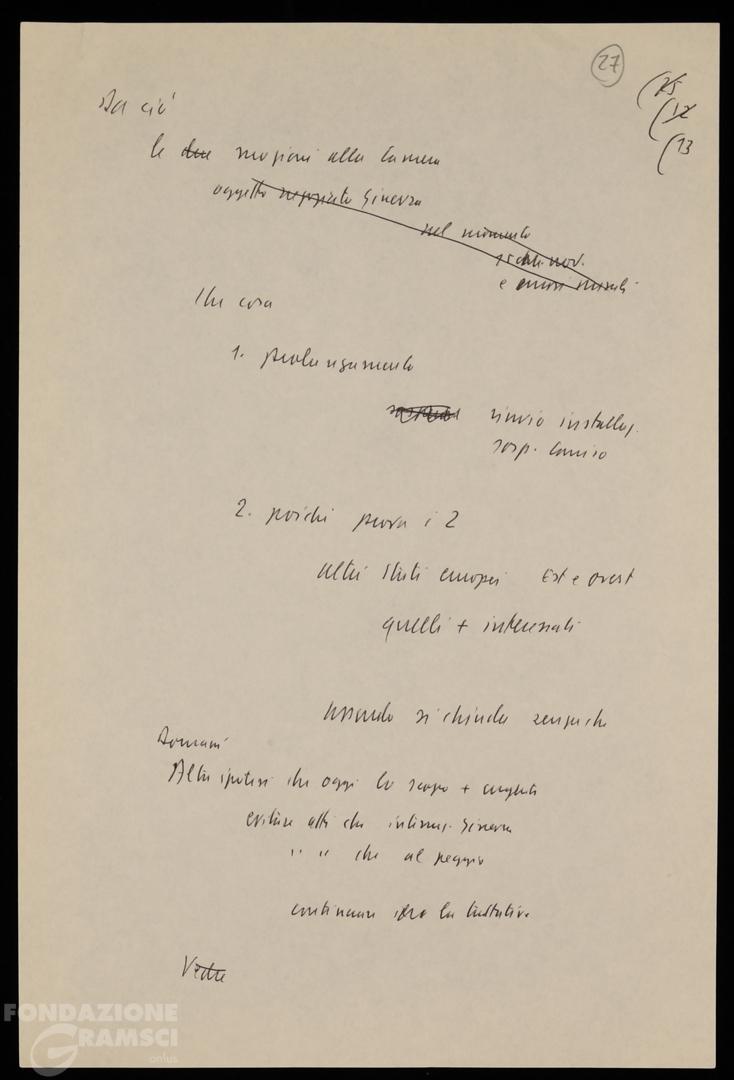 27
(25
(12
(13
Da ciò
le due mozioni alla Camera
oggetto negoziato Ginevra
nel momento
e
Che cosa
1. prolungamento
rinvio installaz.
sosp. Comiso
2. poiché prova i 2
altri Stati europei Est e ovest
quelli + interessati
si chiuda
Domani
Altre ipotesi che oggi lo scopo + urgente
evitare atti che Ginevra
" " che al peggio
continuare la trattativa
Vedre
FONDAZIONE
GRAMSCI
onlus